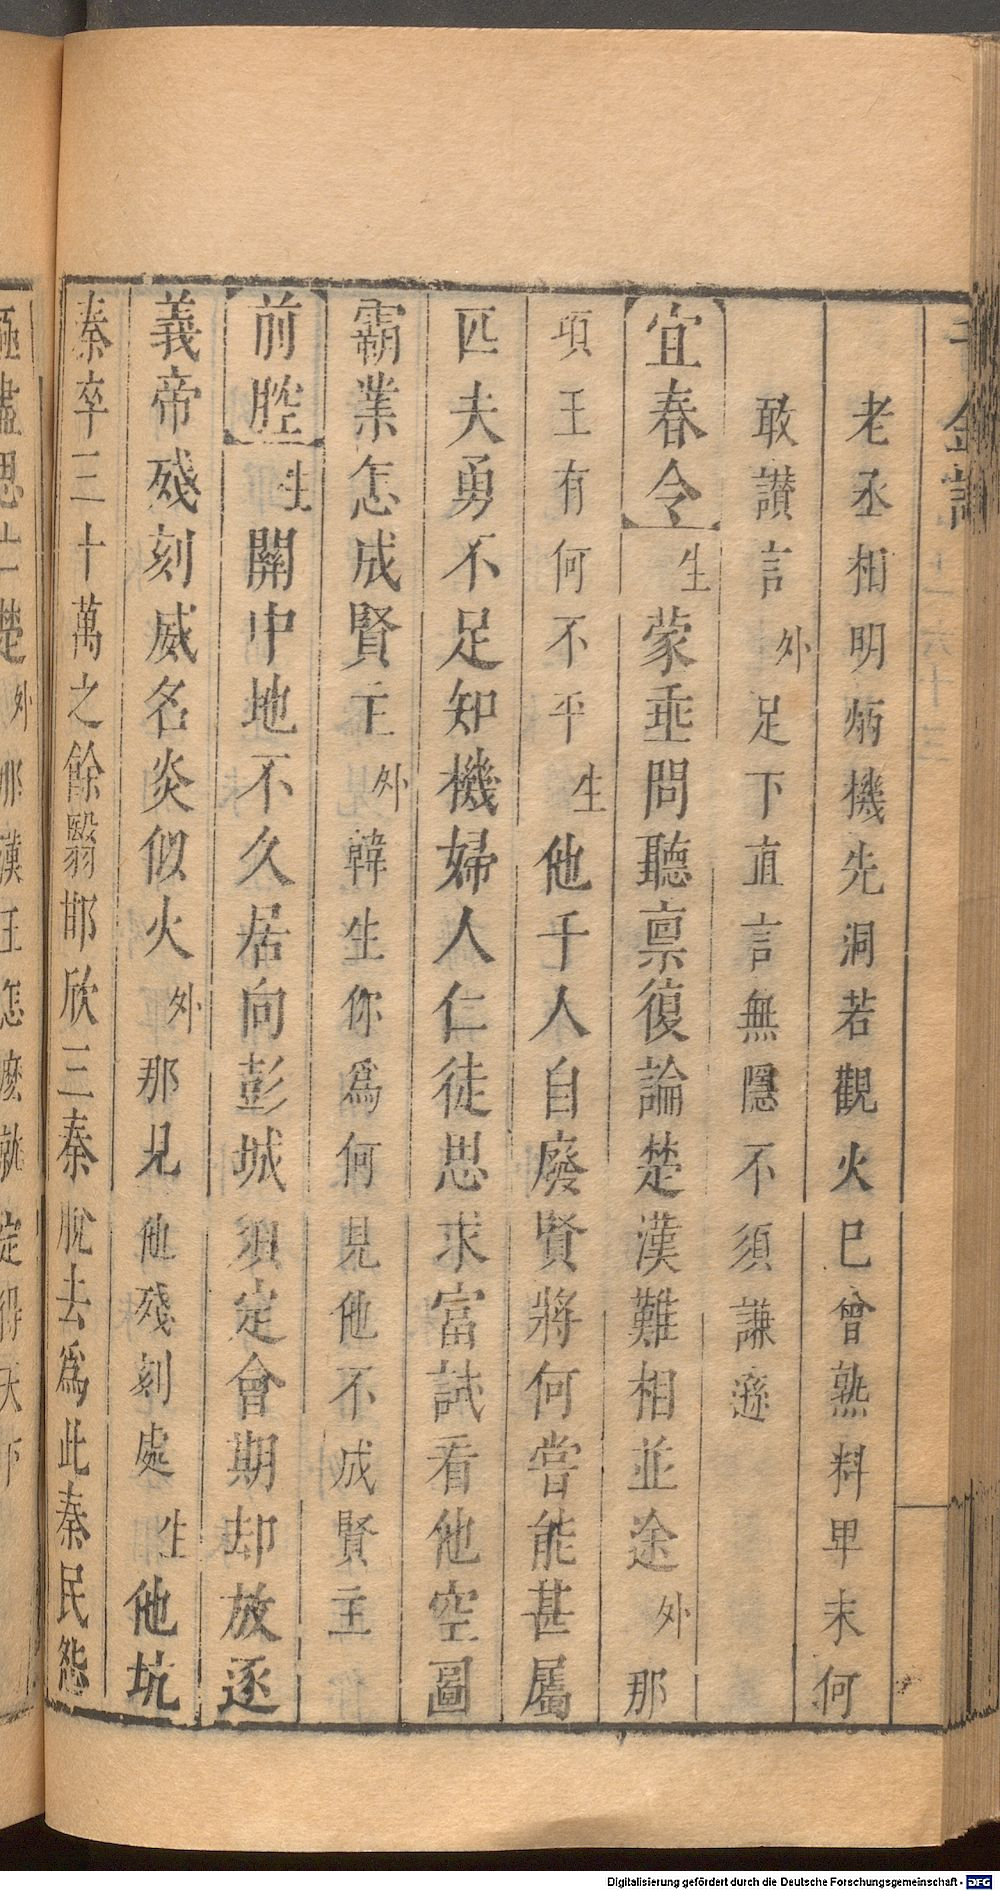 老丞相明炳機先洞若觀火已曾熟料卑末何
敢讃言外足下直言無隱不須謙遜
宜春令生蒙垂問聽禀復論楚漢難相並途外那
項王有何不平生他千人自廢賢將何嘗能甚屬
匹夫勇不足知機婦人仁徒思求富試看他空圖
霸業怎成賢主外韓生你爲何見他不成賢主
前腔生關中地不久居向彭城須定會期却放逐
義帝殘刻威名炎似火外那見他殘刻處生他坑
秦卒三十萬之餘翳邯欣三秦脫去爲此秦民怨
楚外那漢王怎麽就定得天下
Digitalisierung gefördert durch die Deutsche Forschungsgemeinschaft - DFG